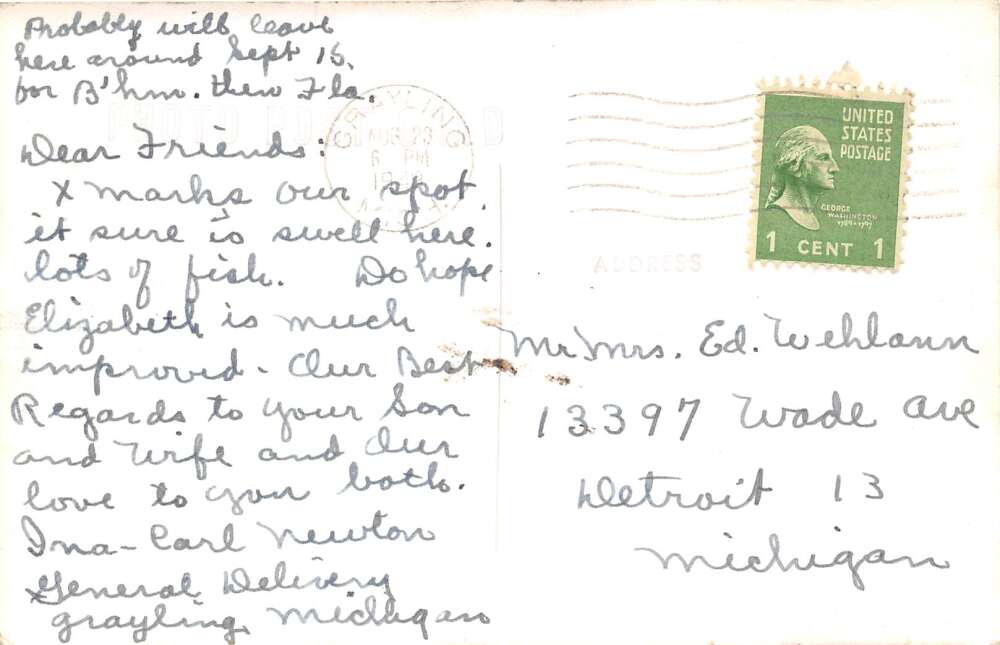 Probably will leave
here around Sept 15,
for B'hm. then Fla.
Dear Friends:
X marks our spot,
it sure is swell here.
lots of fish. Do hope
Elizabeth is much
improved - Our Best
Regards to your Son
and Wife and Our
love to you both.
Ina - Carl Newton
General Delivery
Grayling, Michigan
GRAYLING
AUG 23
6 PM
UNITED
STATES
POSTAGE
GEORGE
WASHINGTON
1789-1797
1 CENT 1
ADDRESS
Mr Mrs. Ed. Wehlann
13397 Wade Ave
Detroit 13
Michigan